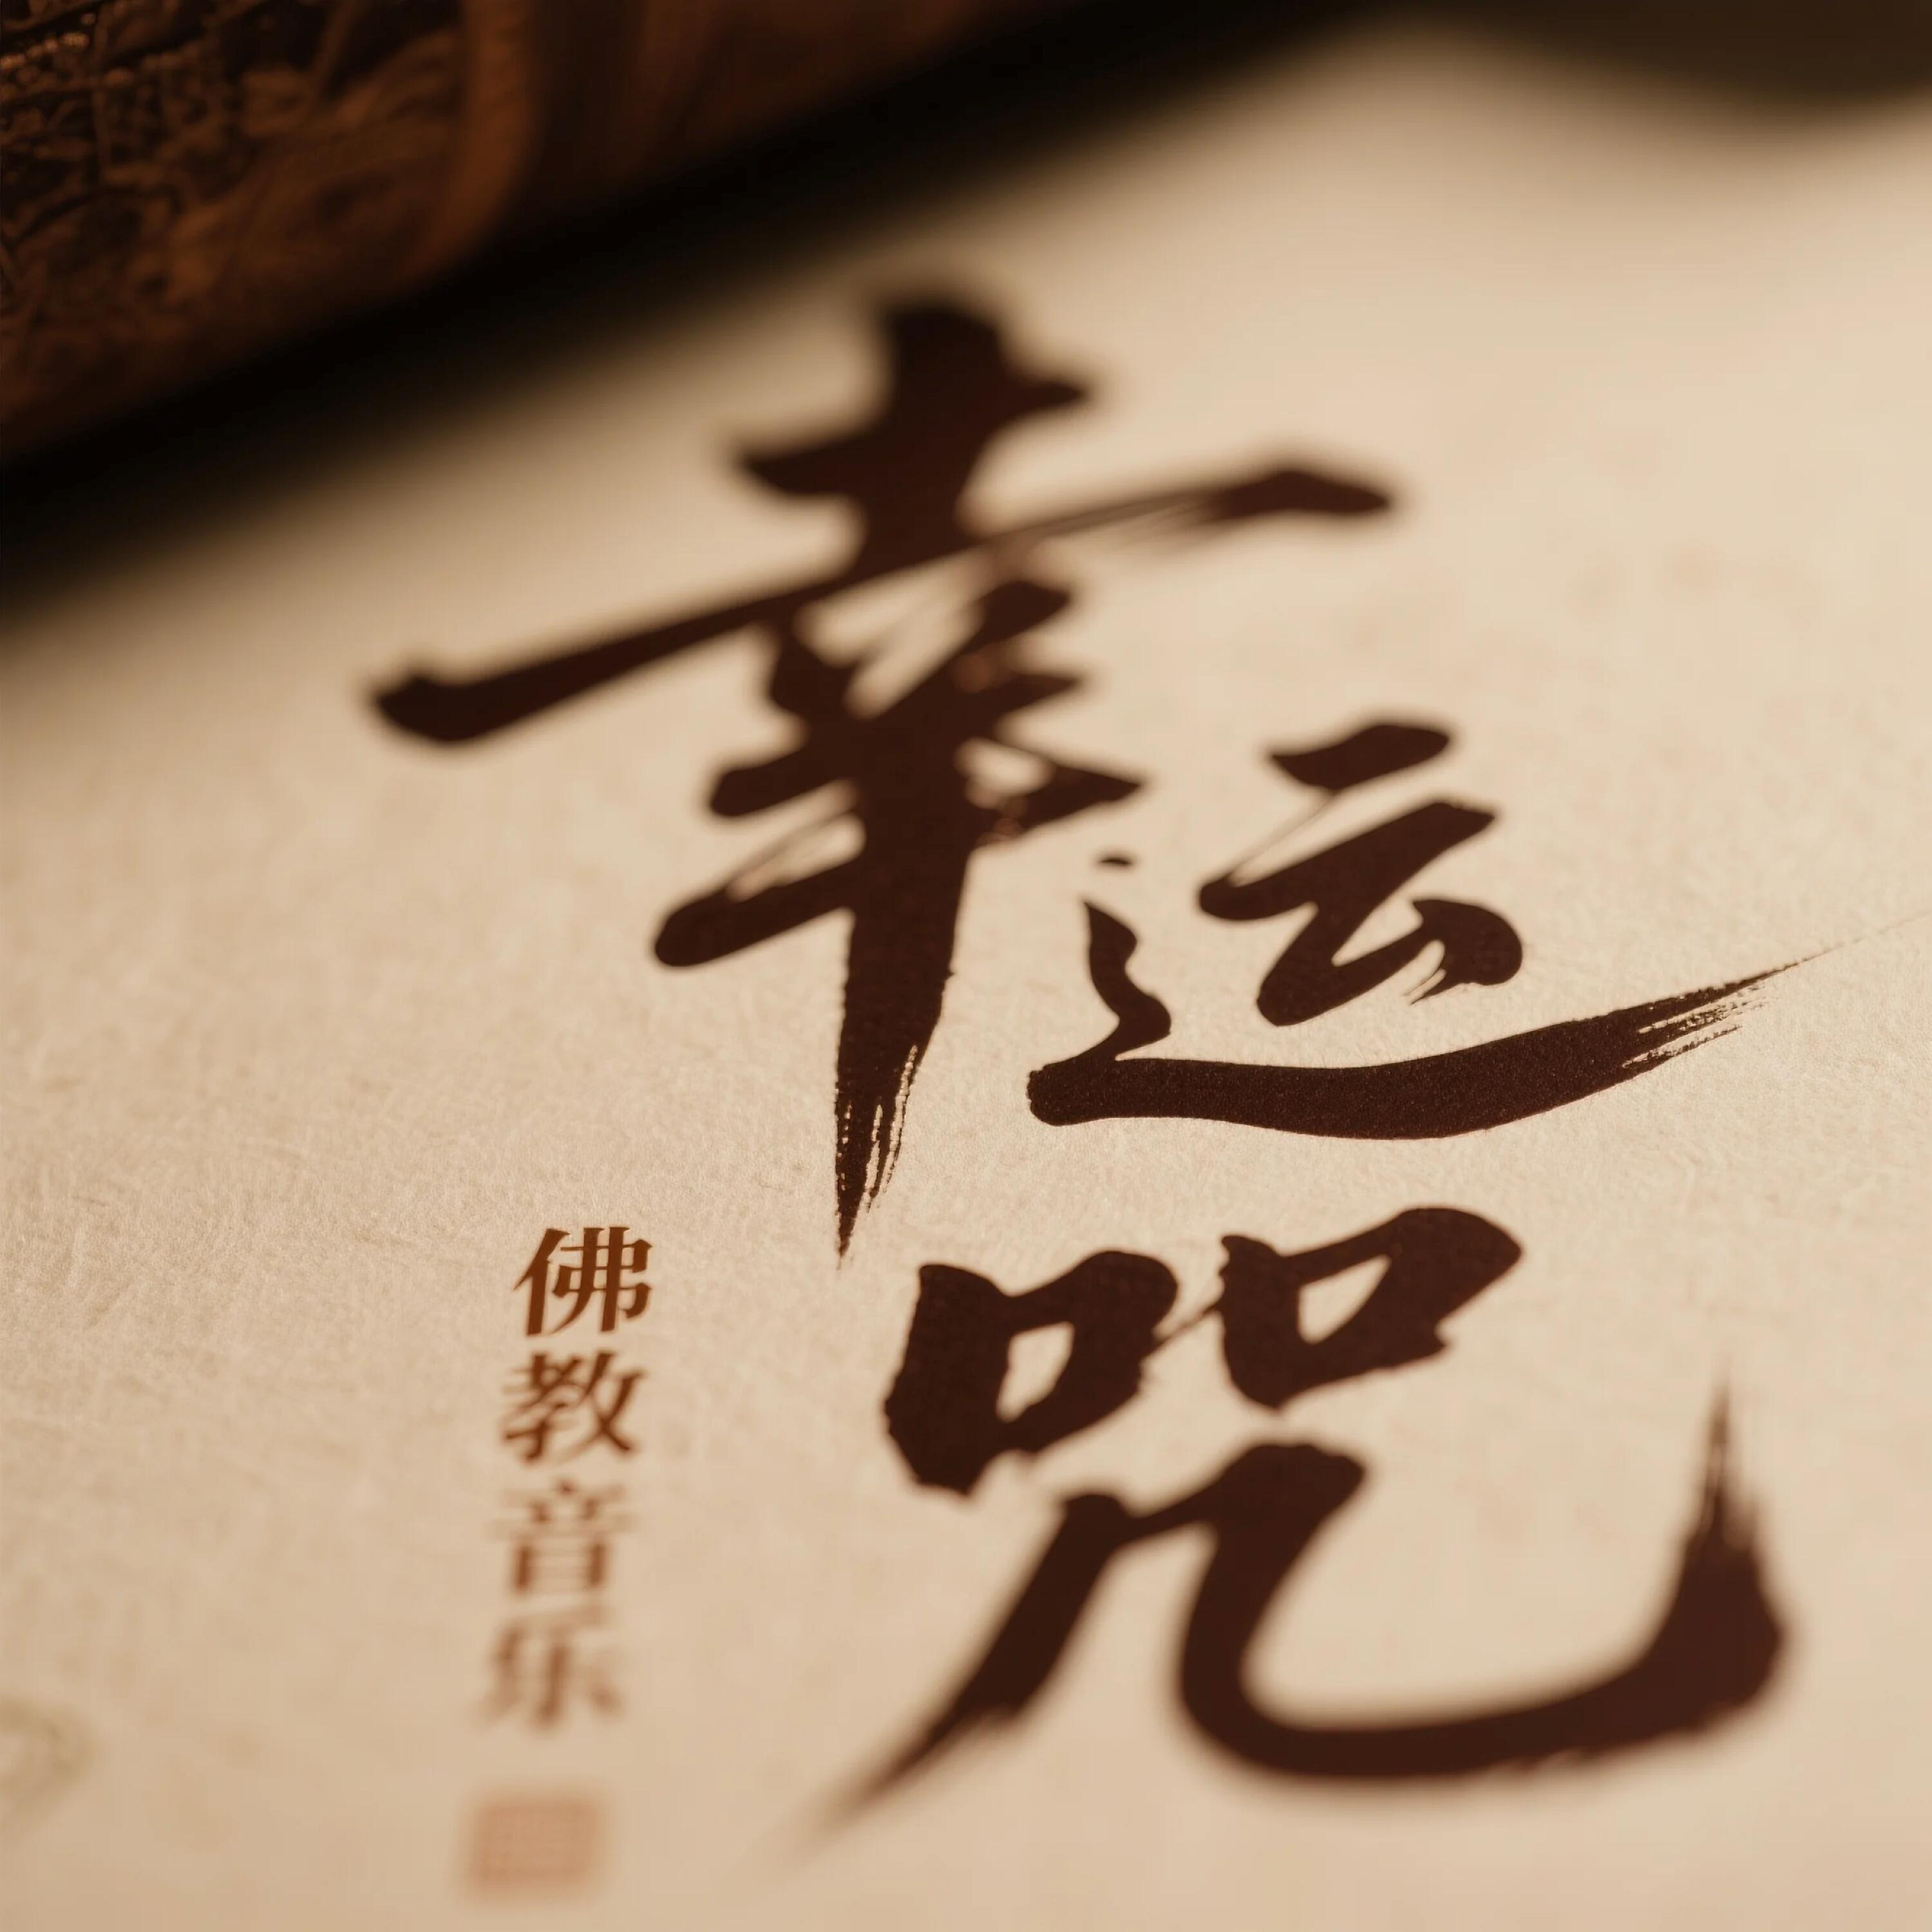 幸运咒
佛教音乐